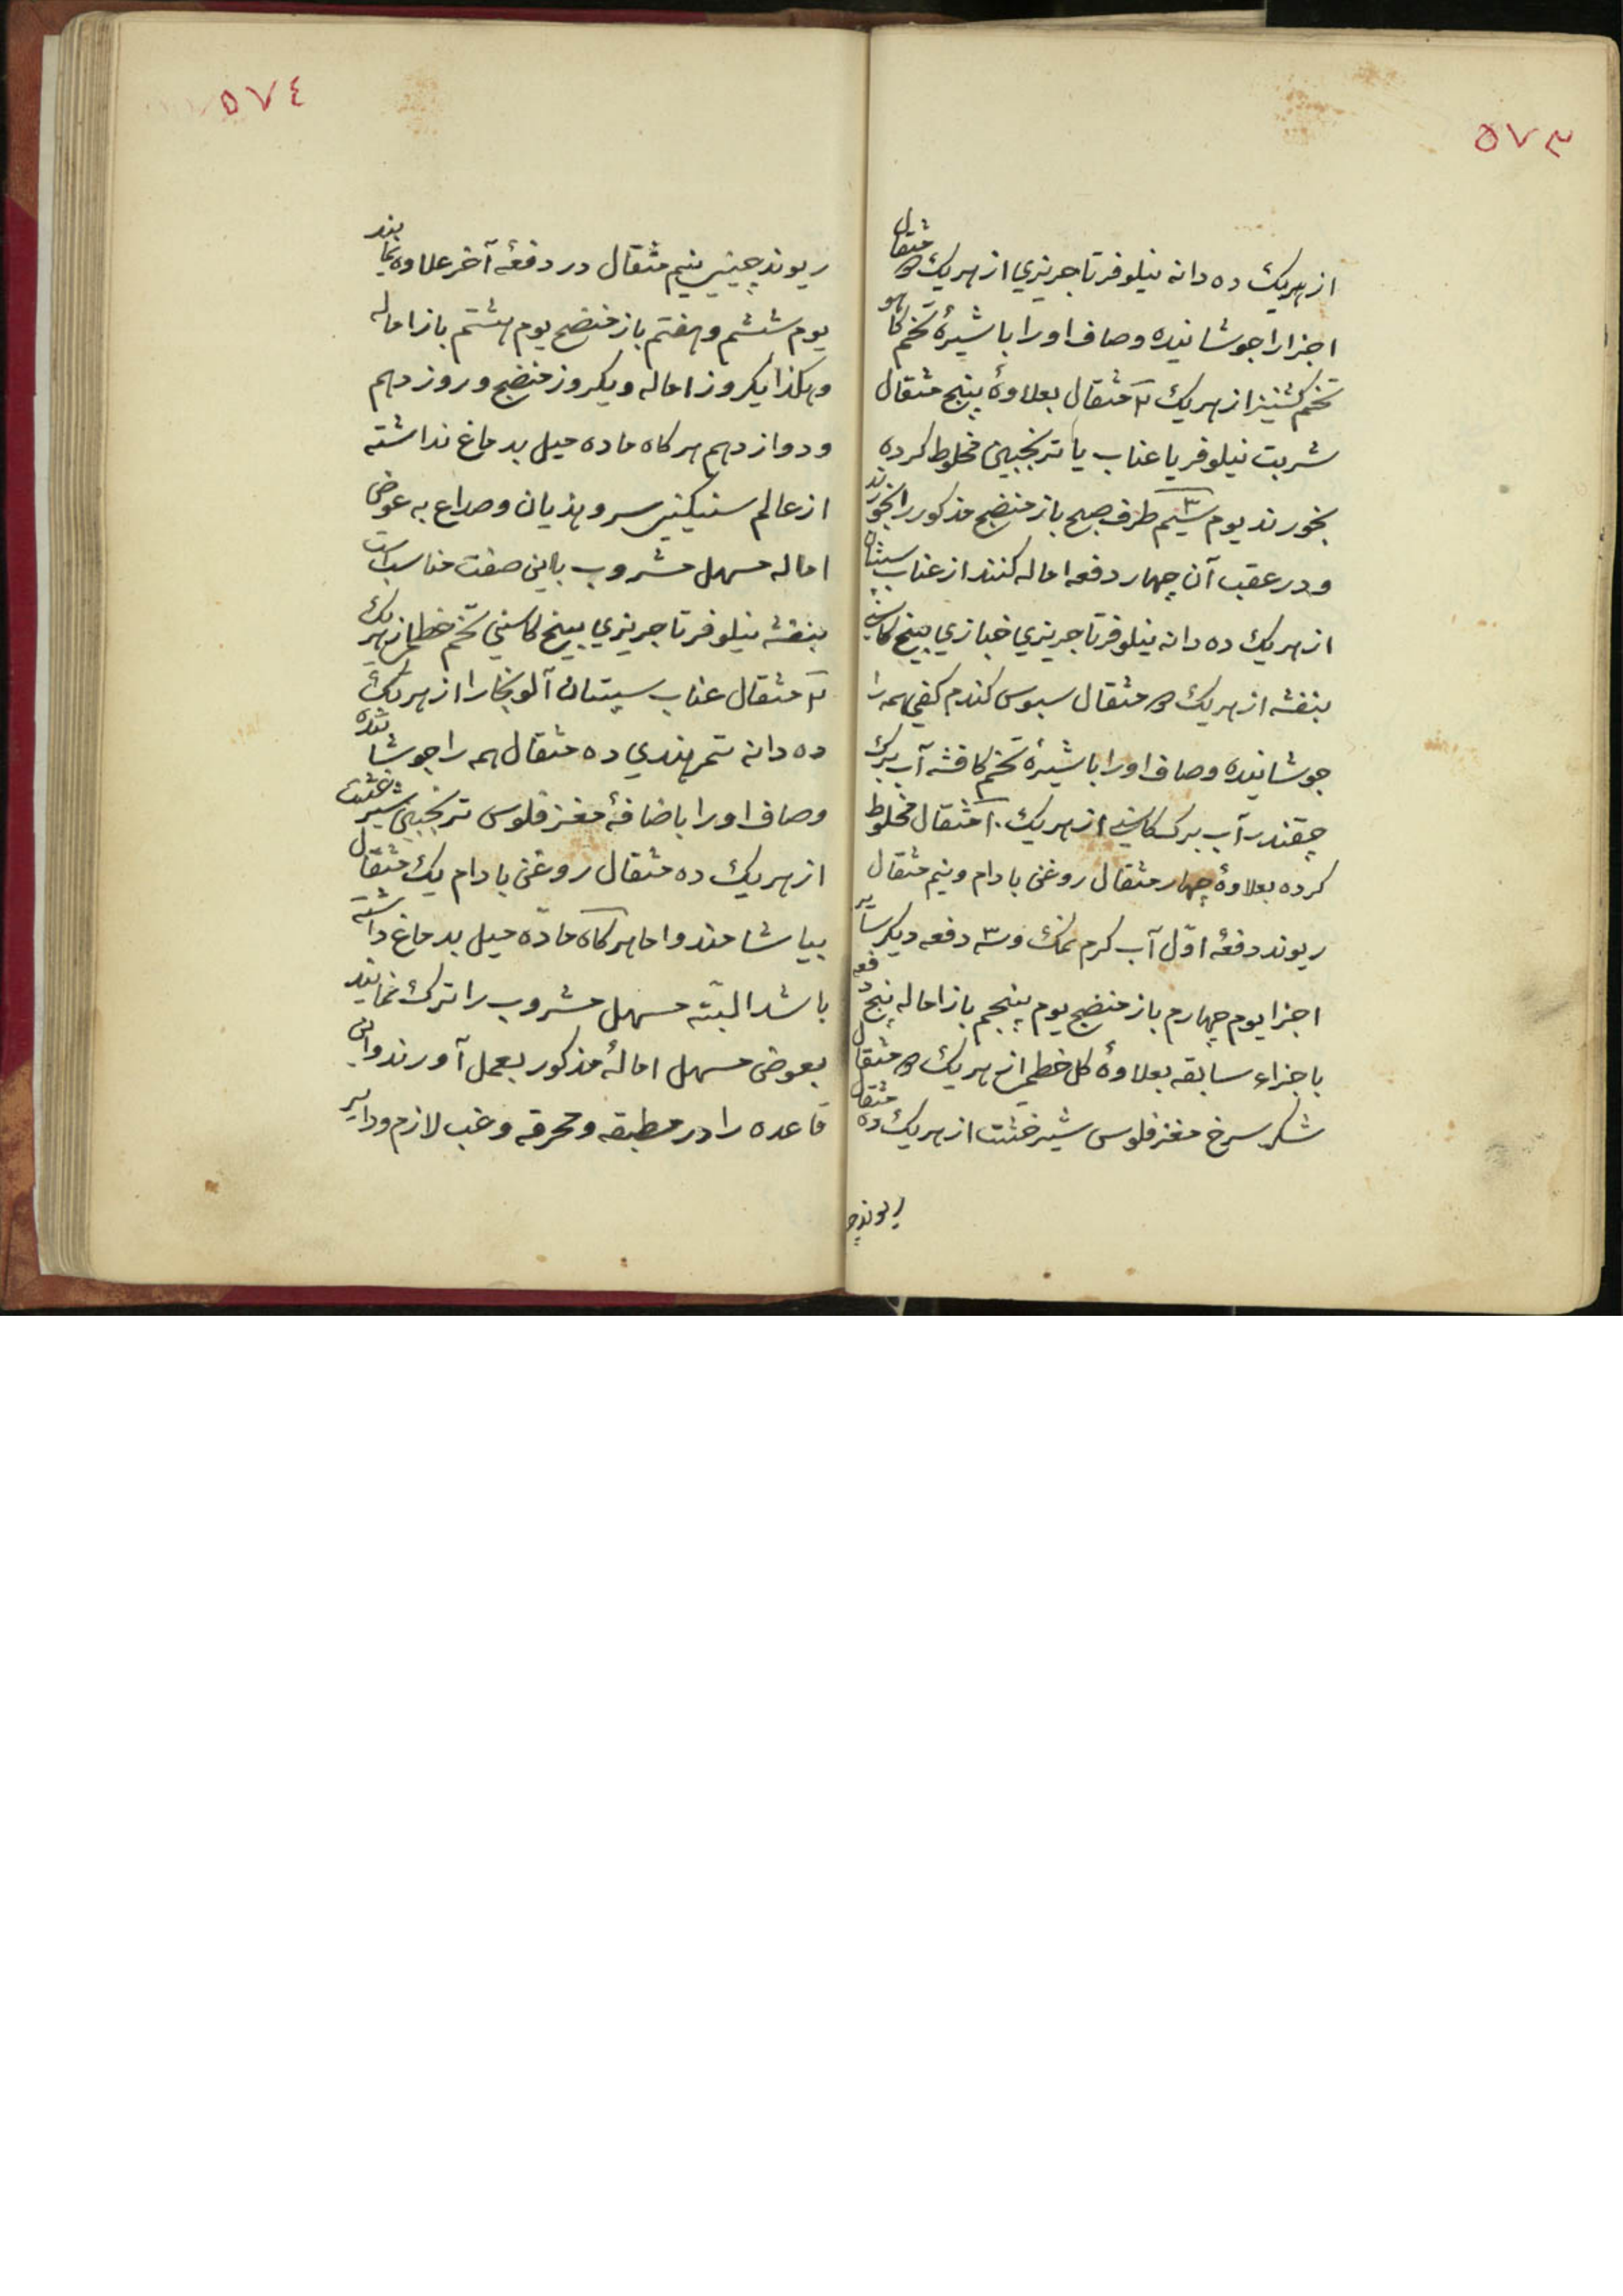 ۵۷۳
از هریک ده دانه نیلوفر تاجریزي از هریک ۵ مثقال
اجزا را جوشانیده و صاف او را با شیرهٔ تخم کاهو
تخم کشنیز از هریک ۲ مثقال بعلاوهٔ پنج مثقال
شربت نیلوفر یا عناب یا ترنجبین مخلوط کرده
بخورند یوم سیم طرف صبح باز منضج مذکور را بخورند
و در عقب آن چهار دفعه اماله کنند از عناب سپستان
از هریک ده دانه نیلوفر تاجریزي خبازي بیخ کاسنی
بنفشه از هریک ۵ مثقال سبوس کندم کفی همه را
جوشانیده و صاف او را با شیرهٔ تخم کافشه آب برک
چقندر آب برک کاسنی از هریک ۱۰ مثقال مخلوط
کرده بعلاوهٔ چهار مثقال روغن بادام و نیم مثقال
ریوند دفعهٔ اوّل آب کرم نمک و سه دفعه دیکر سایر
اجزا یوم چهارم باز منضج یوم پنجم باز اماله پنج دفعه
باجزاء سابقه بعلاوهٔ کل خطمی از هریک ۵ مثقال
شکر سرخ مغز فلوس شیرخشت از هریک ده مثقال
ریوند چ
۵۷٤
ریوند چینی نیم مثقال در دفعهٔ آخر علاوه نمایند
یوم ششم و هفتم باز منضج یوم هشتم باز اماله
و هکذا یکروز اماله و یکروز منضج و روز دهم
و دوازدهم هر کاه ماده میل بدماغ نداشته
از عالم سنیکنی سر و هذیان و صداع به عوض
اماله مسهل مشروب باین صفت مناسب است
بنفشه نیلوفر تاجریزي بیخ کاسني تخم خطمی از هریک
۲ مثقال عناب سپستان آلو بخارا از هریک
ده دانه تمر هندي ده مثقال همه را جوشانده
و صاف او را باضافهٔ مغز فلوس ترنجبین شیرخشت
از هریک ده مثقال روغن بادام یک مثقال
بیاشامند و اما هر کاه مادّه میل بدماغ داشته
باشد البتّه مسهل مشروب را ترک نمایند
بعوض مسهل امالهٔ مذکور بعمل آورند و این
قاعده را در مطبقه و محرقه و غب لازم و دایر